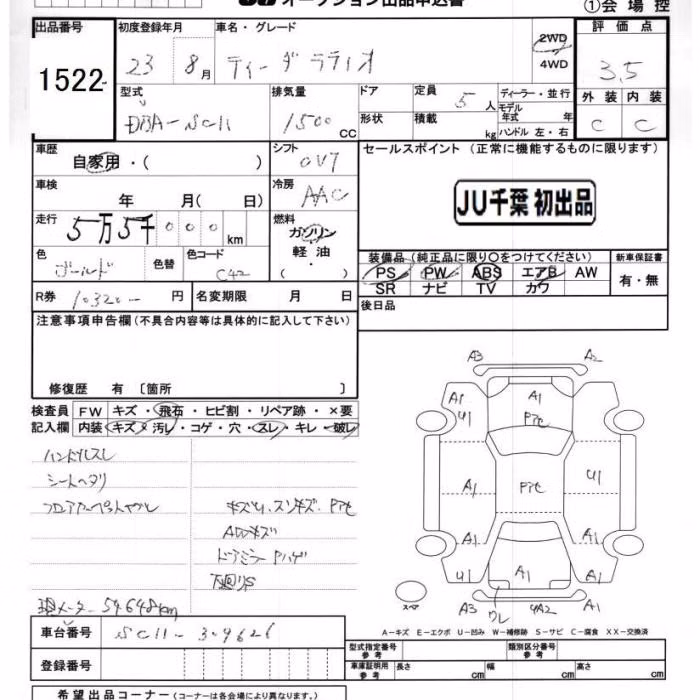 オークション出品申込書
①会場控
出品番号
1522
初度登録年月
23 8月
車名・グレード
ティーダラティオ
2WD
4WD
評価点
3.5
外装 内装
C C
型式
DBA-SC11
排気量
1500 CC
ドア
形状
定員
5人
積載
kg
ディーラー・並行
モデル年式 年
ハンドル 左・右
車歴
自家用・( )
シフト
冷房
AAC
車検
年 月( 日)
走行
5万5千000km
燃料
ガソリン
軽油
色
ゴールド
色替
色コード
C42
R券
10320- 円
名変期限 月 日
セールスポイント (正常に機能するものに限ります)
JU千葉 初出品
装備品 (純正品に限り○をつけてください)
PS PW ABS エアB AW
SR ナビ TV カワ
新車保証書
有・無
後日品
注意事項申告欄(不具合内容等は具体的に記入して下さい)
修復歴 有〔箇所 〕
検査員記入欄
FW キズ・飛石・ヒビ割・リペア跡・×要
内装 キズ・汚レ・コゲ・穴・スレ・キレ・破レ
ハンドルスレ
シートヘタリ
キズU、スリキズ、Pアセ
AWキズ
ドアミラーPハゲ
下廻りS
現メーター 54648km
A3 A2
A1 A1 A1
U1 Pアセ U1
A1 Pアセ U1
A1 A1
U1 A1 A1 A1
A3 ワレ 4A2 A1
スペア
A-キズ E-エクボ U-凹み W-補修跡 S-サビ C-腐食 XX-交換済
車台番号
SC11-309626
登録番号
型式指定番号 参考
類別区分番号 参考
車庫証明用 参考
長さ cm 幅 cm 高さ cm
希望出品コーナー(コーナーは各会場により異なります。)